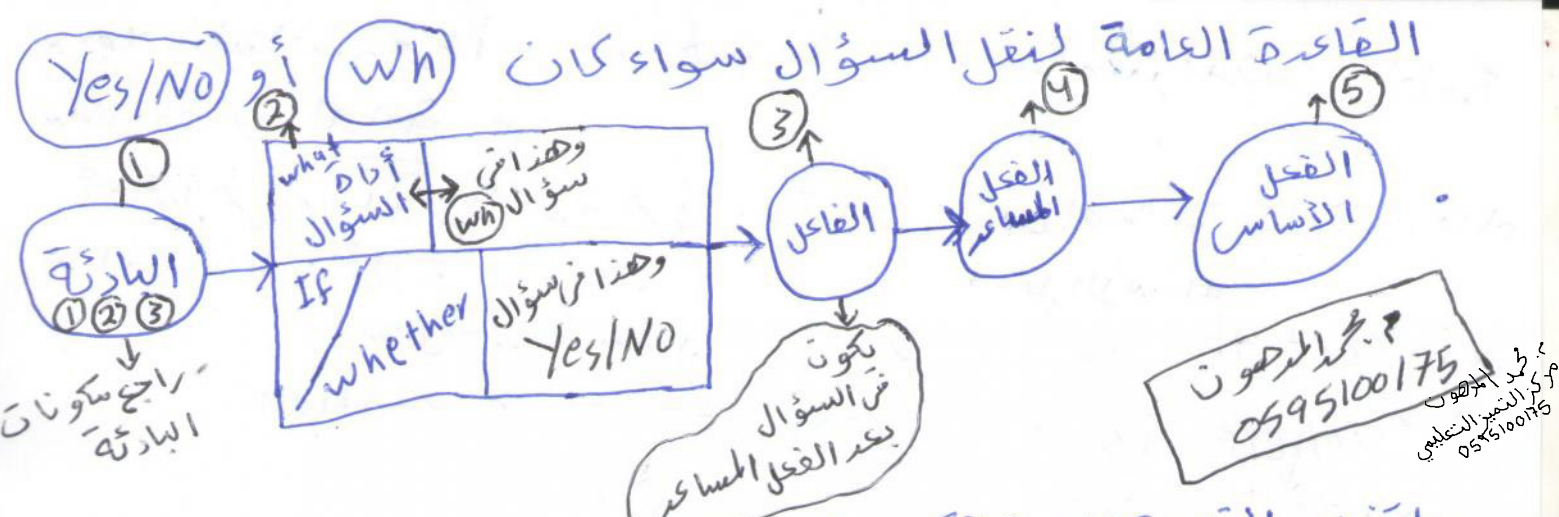 القاعدة العامة لنقل السؤال سواء كان Wh أو Yes/No
①
البادئة
① ② ③
راجع مكونات
البادئة
②
what
أداة
السؤال
وهذا في
سؤال Wh
If / whether
وهذا في سؤال
Yes/No
③
الفاعل
يكون
في السؤال
بعد الفعل المساعد
④
الفعل
المساعد
⑤
الفعل
الأساسي
م. محمد المدهون
0595100175
م. محمد المدهون
مركز التميز التعليمي
0595100175